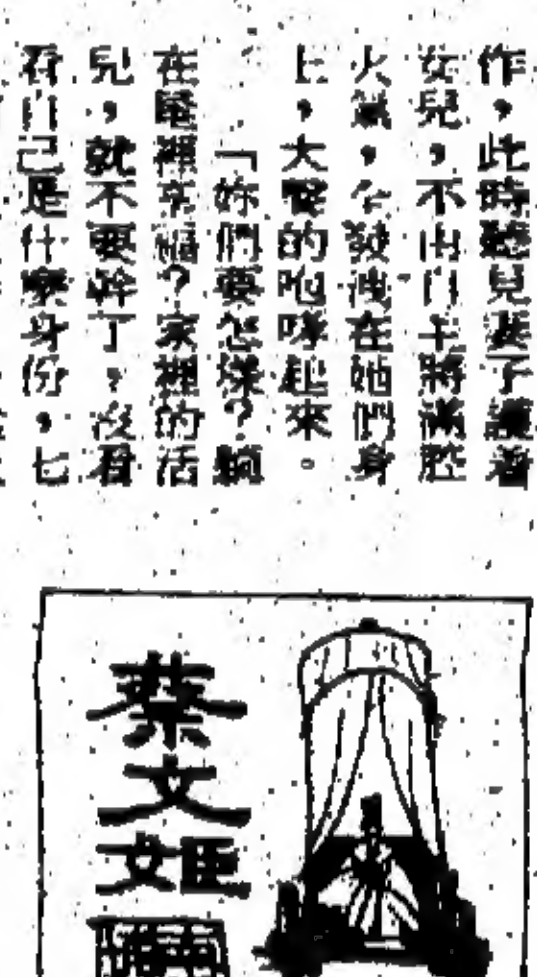 作，此時聽見妻子護着
女兒，不由自主將滿腔
火氣，全發洩在她們身
上，大聲的咆哮起來。
「妳們要怎樣？躺
在屋裡享福？家裡的活
兒，就不要幹了，沒看
看自己是什麼身份，七
蔡文姬